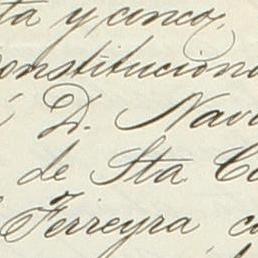 ta y cinco,
onstitucion
D. Nav
de Sta C
Ferreyra c